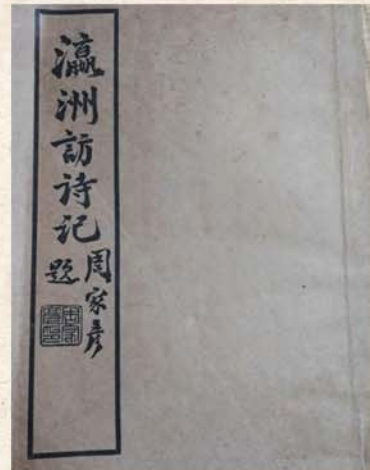 瀛洲訪诗记
周家彦
题